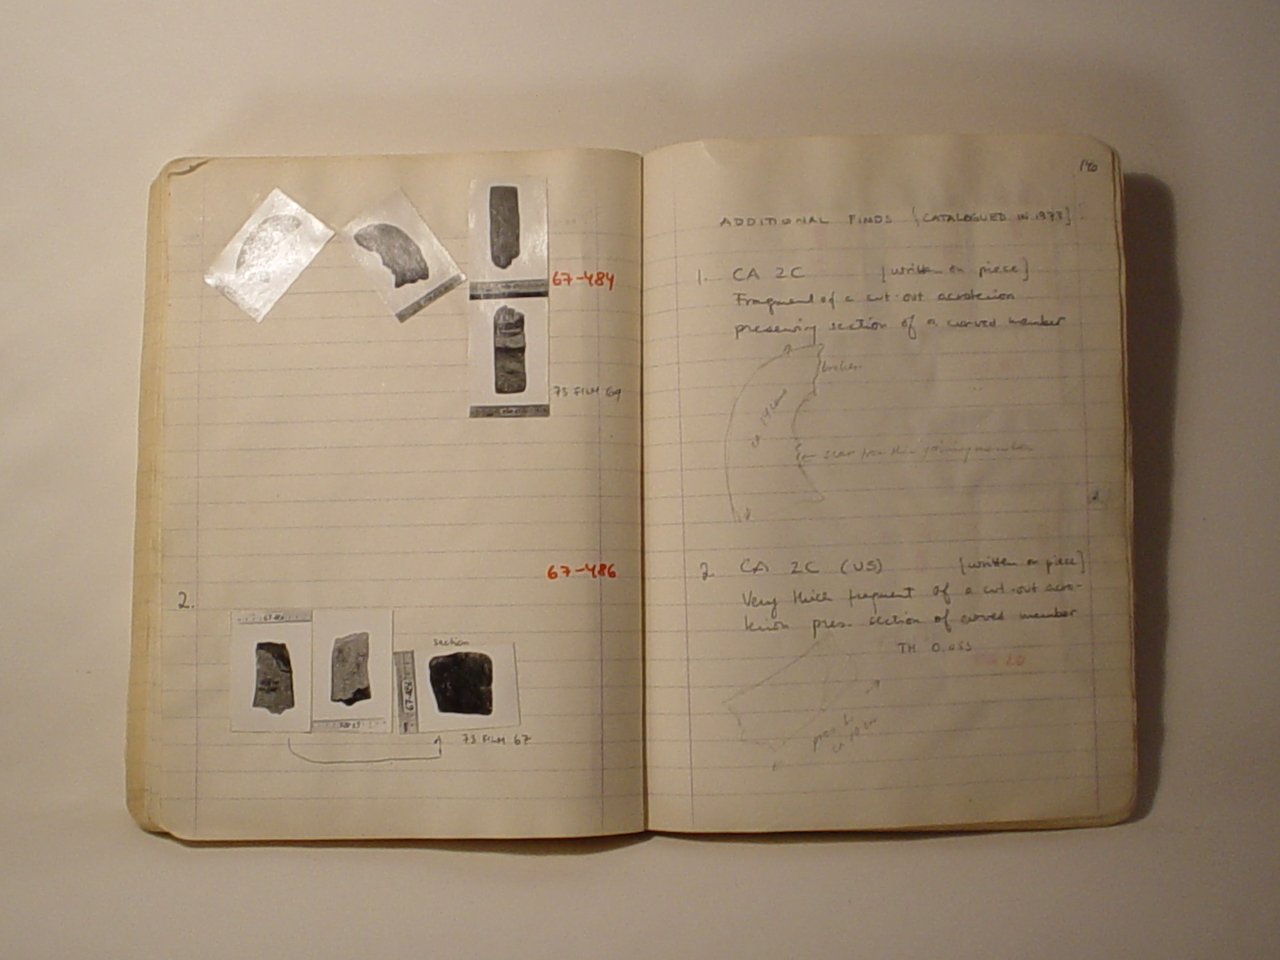 67-484
73 FILM 69
67-486
2.
section
67-486
73 FILM 67
190
ADDITIONAL FINDS [CATALOGUED IN 1973]
1. CA 2C [written on piece]
Fragment of a cut-out acroterion
preserving section of a curved member
broken
scar from thin joining member
2. CA 2C (US) [written on piece]
Very thick fragment of a cut-out acro-
terion pres. section of curved member
TH 0.053
pres. L
ca 10 cm